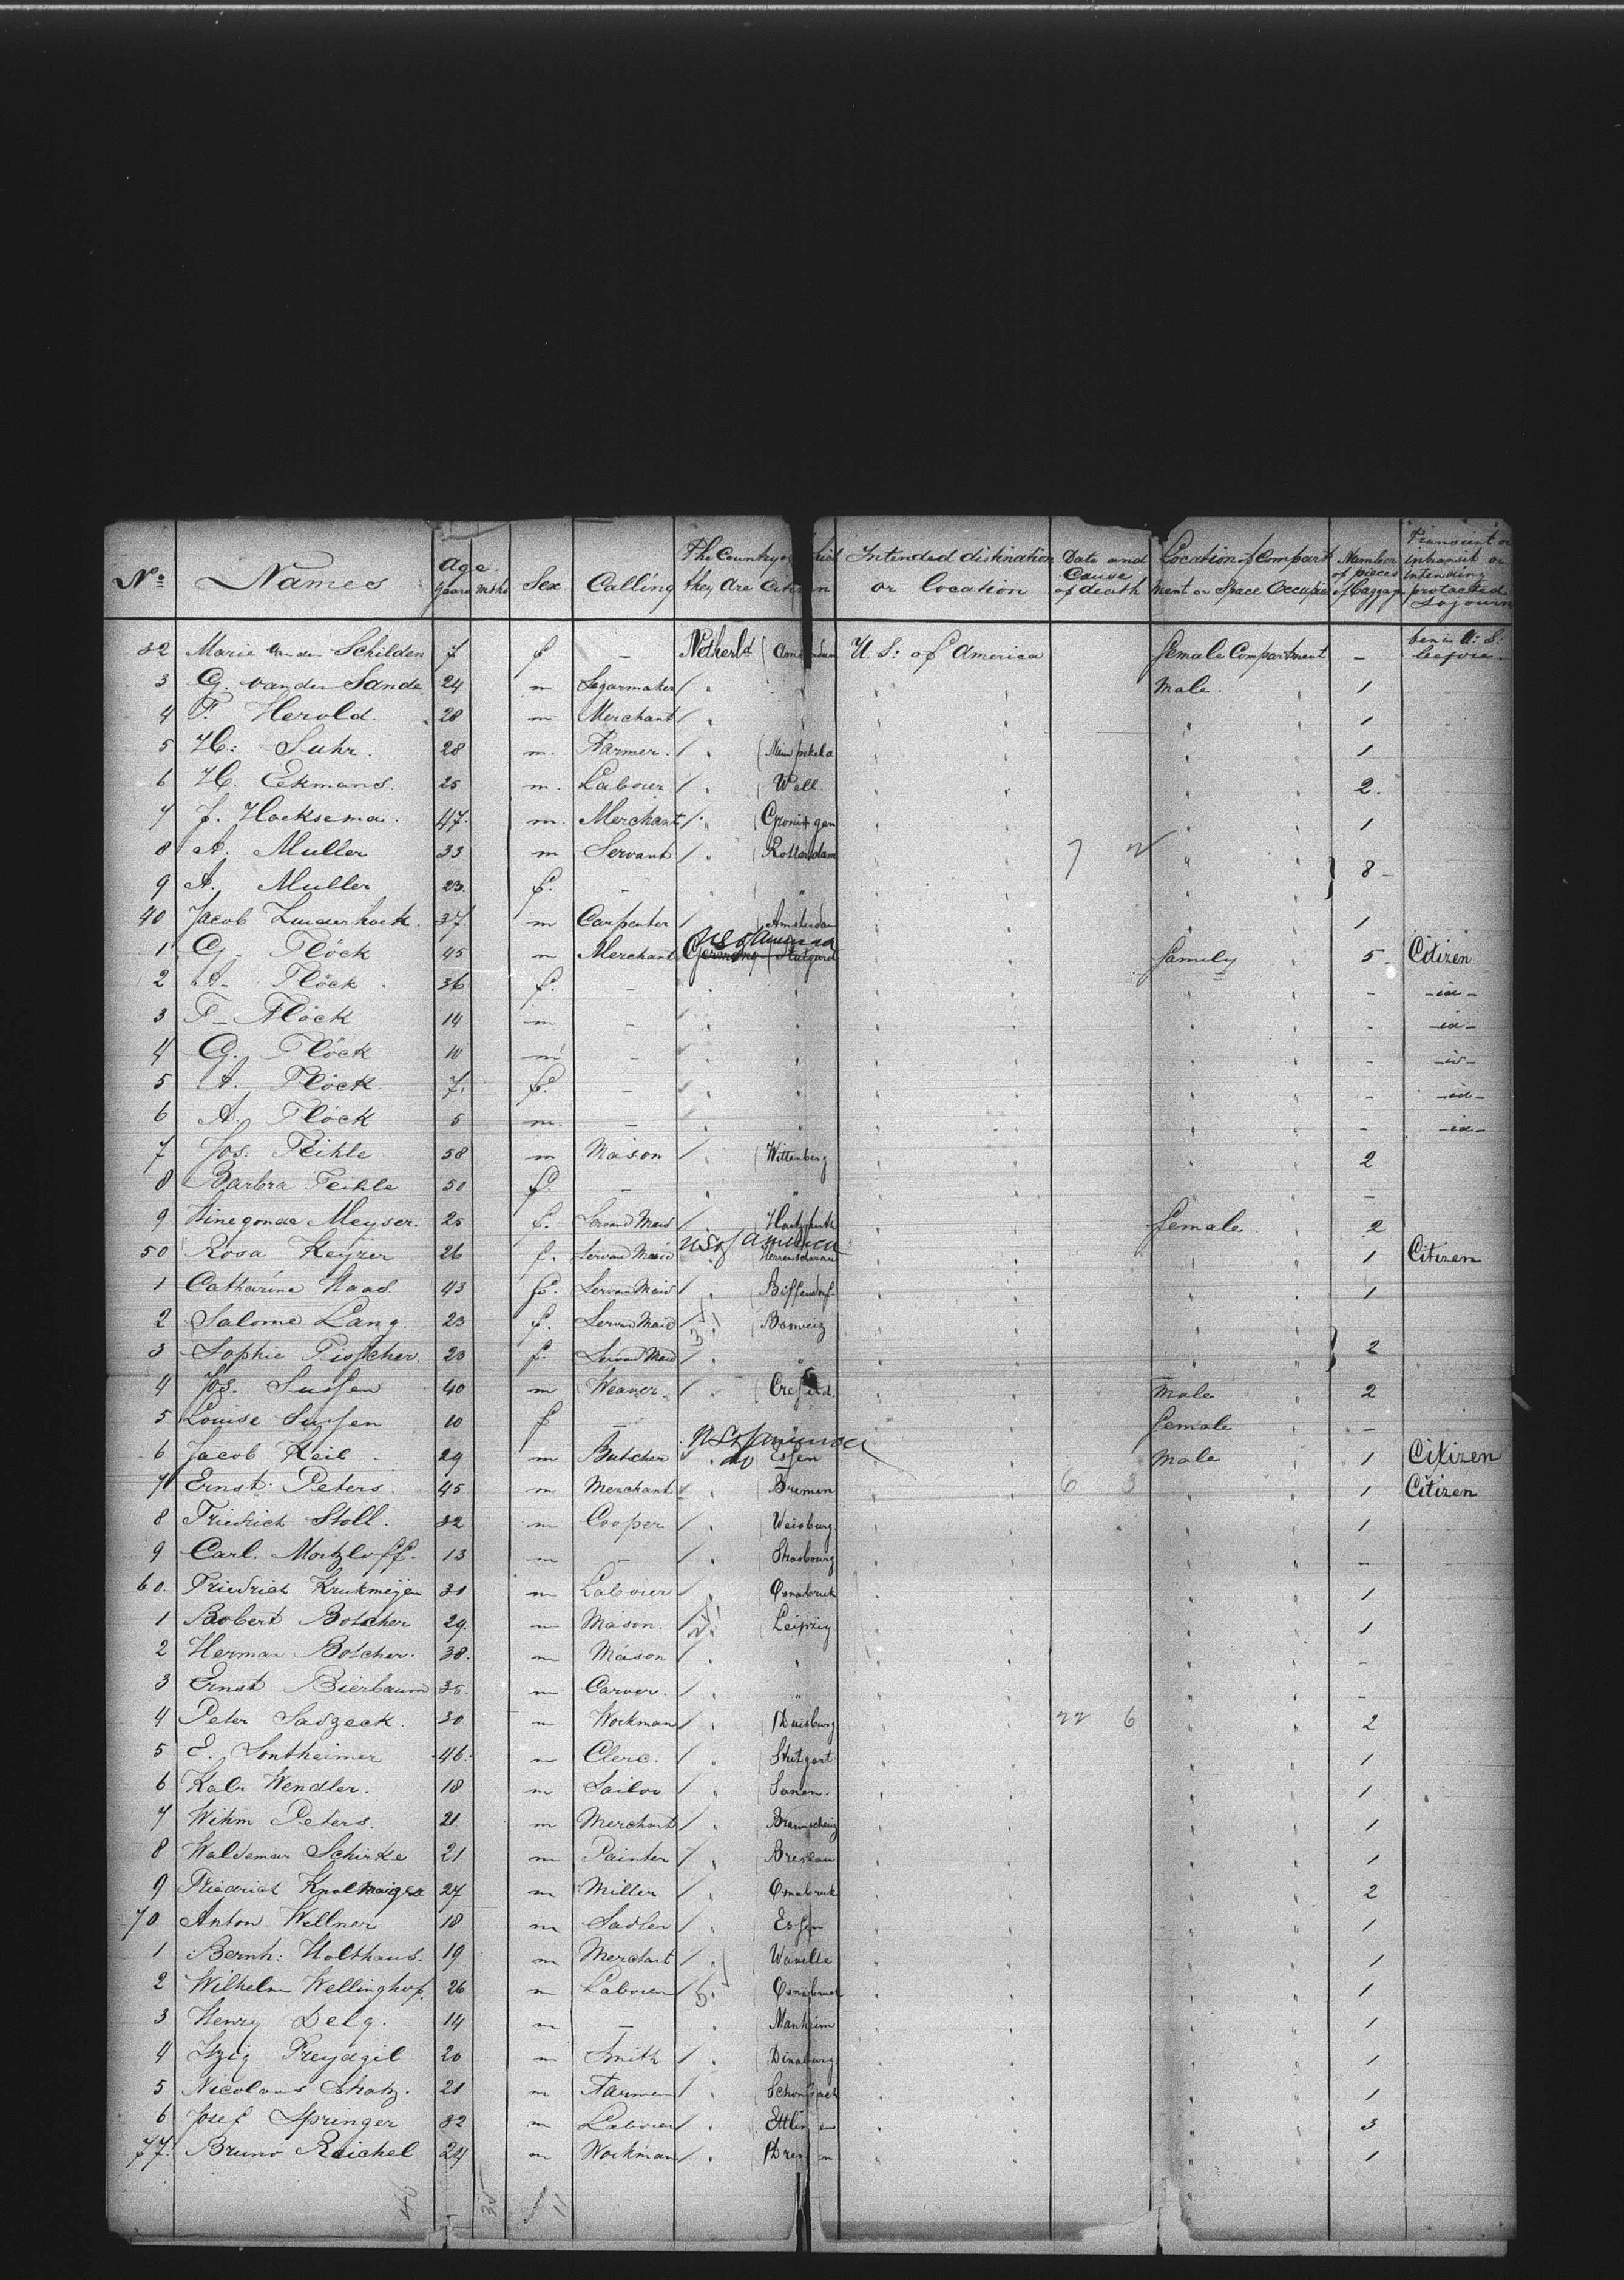 No. Names Age. Years Mths Sex Calling The Country of they Are Citizen Intended distination or location Date and Cause of death Location of Compartment or Space Occupied Number of pieces of Baggage Transient or intransit or intending protacted sojourn
32 Marie van der Schilden 7 f — Netherld Amsterdam U. S: of America female Compartment — been in U: S: before
3 G. van der Sande 24 m Segarmaker " " " male " 1
4 F. Herold. 28 m Merchant " " " " 1
5 H: Suhr. 28 m. Farmer. " " " " 1
6 H. Eekmans. 25 m. Labouer " Well. " " 2.
7 J. Hoeksema. 47. m. Merchant " Groningen " " 1
8 A. Muller 33 m Servant " Rotterdam " " 8 -
9 A. Muller 23. f. — " " " "
40 Jacob 37. m Carpenter " Amsterdam " " 1
1 G. Flöck 45 m Merchant U S of America Germany Stutgard " family " 5 Citizen
2 A. Flöck 36 f. — " " " " — -id-
3 F. Flöck 14 m — " " " " — -id-
4 G. Flöck 10 m — " " " " — -id-
5 A. Flöck 7. f. — " " " " — -id-
6 A. Flöck 5 m. — " " " " — -id-
7 Jos. Feihle 58 m Mason " Wittenberg " " 2
8 Barbra Feihle 50 f. — " " " " —
9 Kinegonde Meyser. 25 f. Servand Maid " " female " 2
50 Rosa Keyzer 26 f. Servand Maid U S of America " " 1 Citizen
1 Catharina Haas 43 f. Servand Maid " Bissendorf " " 1
2 Salome Lang. 23 f. Servand Maid " " " 2
3 Sophie Fisscher. 20 f. Servand Maid " " " "
4 Jos. Sussen 40 m Weaver. " Crefeld " male " 2
5 Louise Sussen 10 f — " " female " —
6 Jacob Keil 29 m Butscher U S of America Essen " male " 1 Citizen
7 Ernst Peters. 45 m Merchant do Bremen " 6 3 " 1 Citizen
8 Friedrich Stoll. 32 m Cooper " Weisburg " " 1
9 Carl. Mortzloff. 13 m — " Strasbourg " " —
60. Friedrich Krukmeijer 31 m Labouer " Osnabruk " " 1
1 Robert Botcher 29. m Mason. " Leipzig " " 1
2 Herman Botcher. 38. m Mason " " " " —
3 Ernst Bierbaum 35. m Carver. " " " " —
4 Peter Sadgeck. 30 m Workman " Duisburg " 22 6 " 2
5 E. Sontheimer 46. m Clerc. " Stutgart " " 1
6 Kalr Wendler. 18 m Sailor " " " 1
7 Wihm Peters. 21 m Merchant " Braunscheig " " 1
8 Waldemar Schirke 21 m Painter " Breslau " " 1
9 Friedrich 27 m Miller " Osnabruk " " 2
70 Anton Wellner 18 m Sadler " Essen " " 1
1 Bernh: Holthaus. 19 m Merchant " " " 1
2 Wilhelm Wellinghof. 26 m Labouer " Osnabruck " " 1
3 Henry Delg. 14 m — " Manheim " " 1
4 Itzig Freydgil 20 m Smith " Dinaburg " " 1
5 Nicolaus Shatz. 21 m Farmer " " " 1
6 Josef Springer 32 m Labouer " " " 3
77. Bruno Reichel 24 m Workman " " " 1
40 35 11